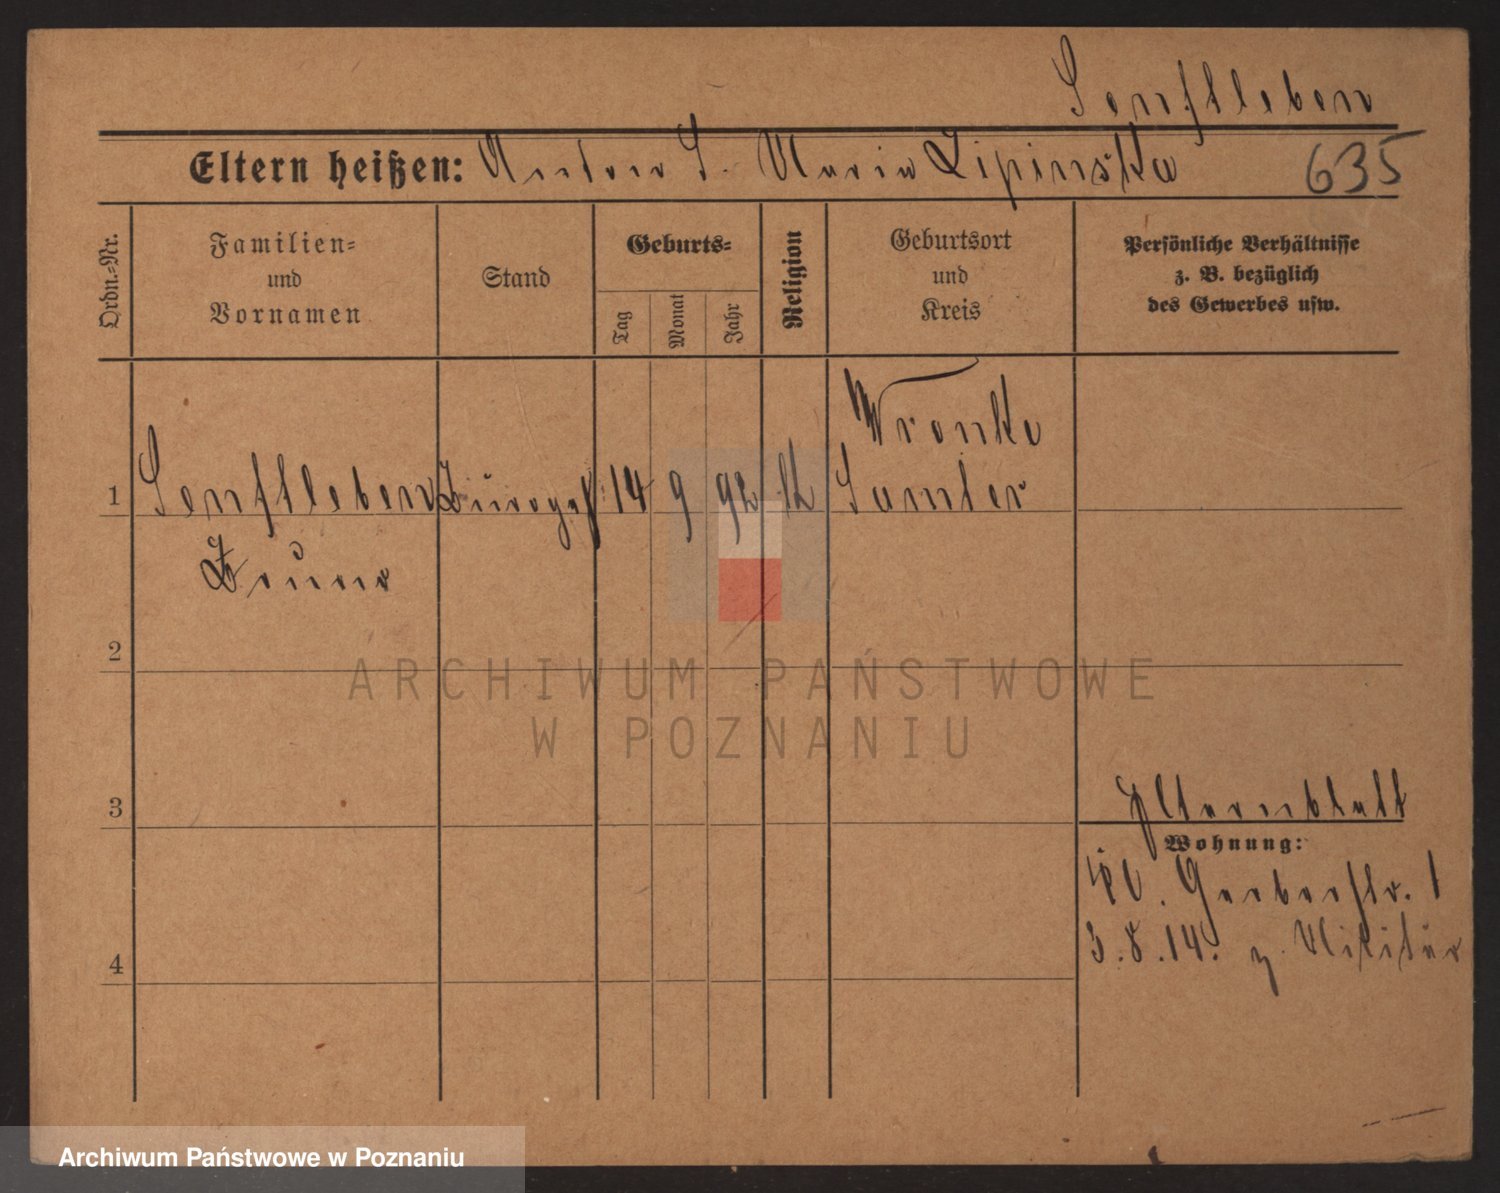 Senftleben
Eltern heißen: Anton S. Maria Lipinska 635
Ordn.-Nr.
Familien-
und
Vornamen
Stand
Geburts-
Tag
Monat
Jahr
Religion
Geburtsort
und
Kreis
Persönliche Verhältnisse
z. B. bezüglich
des Gewerbes usw.
Wronke
1 Senftleben Bürogeh. 14 9 92 Samter
Bruno
2
ARCHIWUM PAŃSTWOWE
W POZNANIU
3
Elternblatt
Wohnung:
Kl. Gerberstr. 1
3.8.14. z. Militär
4
Archiwum Państwowe w Poznaniu